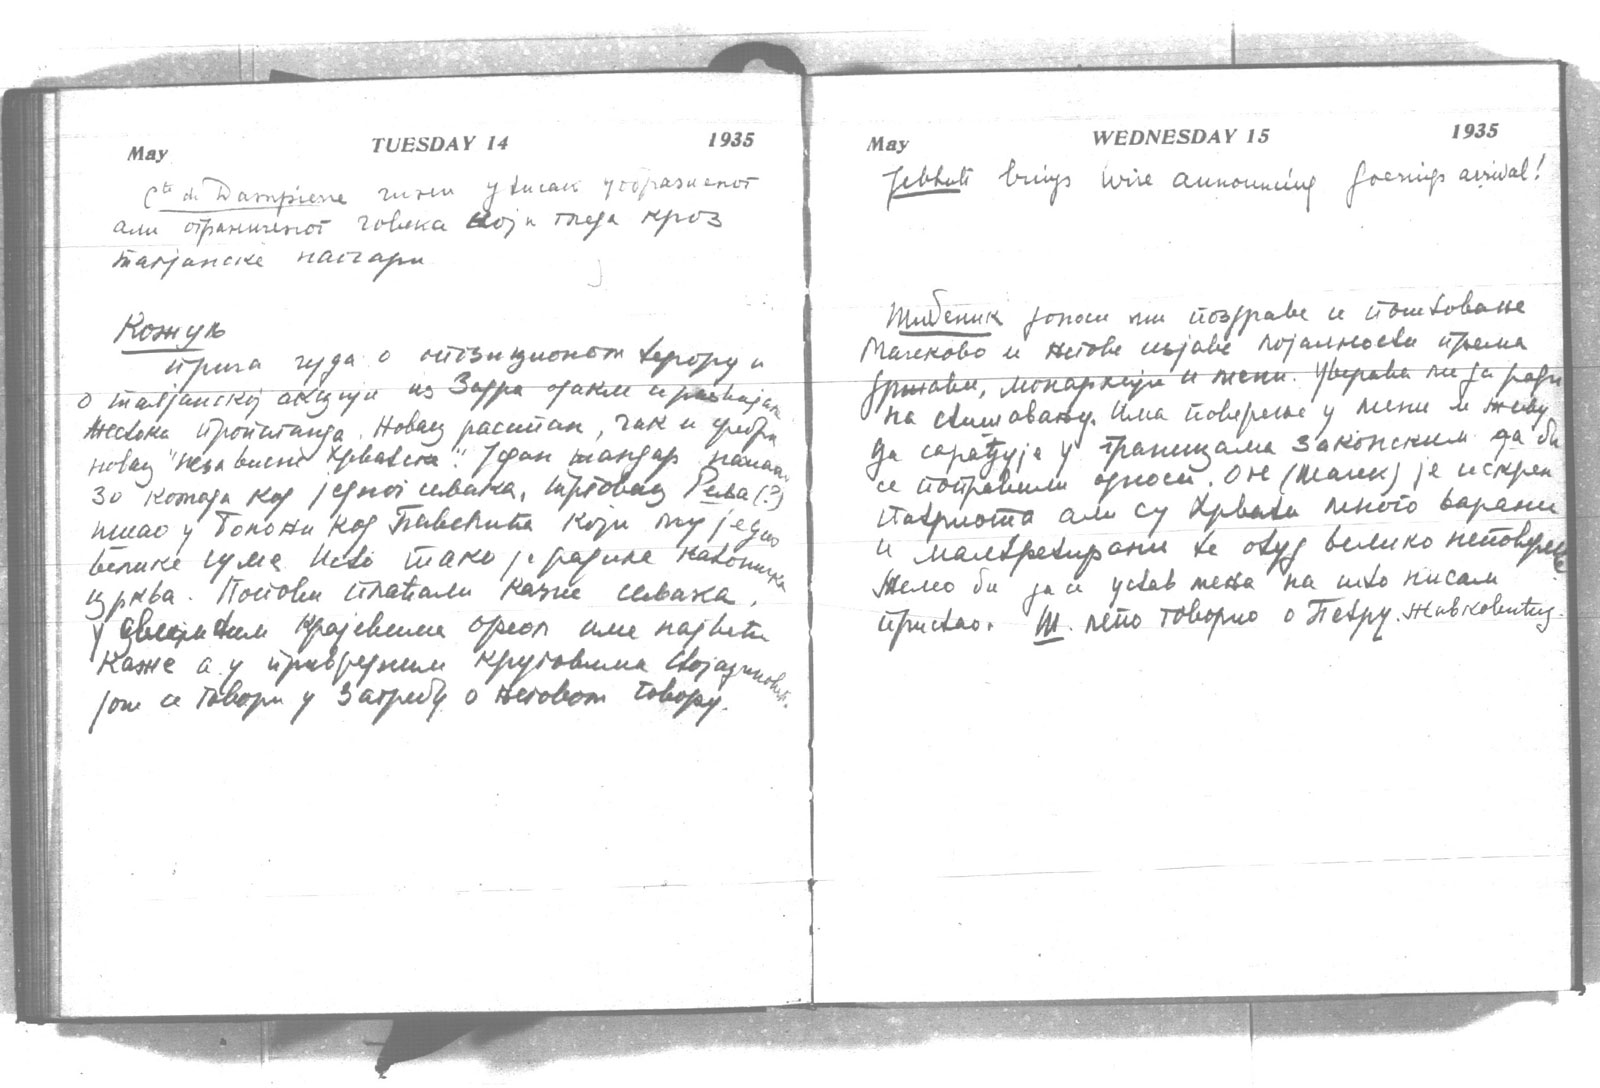 May TUESDAY 14 1935
Cte de Dampierre чини утисак уображеног
али ограниченог човека који гледа кроз
талјанске наочари
Кожуљ
прича чуда о опозиционом терору и
о талјанској акцији из Задра
жестока пропаганда. Новац растпан, чак и сребрн
новац "Независне Хрватске". Један жандар нашао
30 комада код једног сељака, трговац Реља (?)
ишао у Болоњи код Павелића који му је дао
велике суме Исто тако је радила католичка
црква. Попови плаћали казне сељака.
У крајевима ореол има највећи
каже а у привредним круговима Стојадиновић.
још се говори у Загребу о његовом говору.
May WEDNESDAY 15 1935
brings wire announcing Goerings arrival!
Шибеник доноси ми поздраве и поштовање
Мачеково и његове изјаве лојалности према
држави, монархији и мени. Уверава ми да ради
на стишавању. Има поверење у мени и жељу
да сарађује у границама законским да би
се поправили односи. Он (Мачек) је искрен
патриота али су Хрвати много варани
и малтретирани те отуд велико неповерење
Желео би да се устав мења на што нисам
пристао. Ш. лепо говорио о Петру Живковићу.